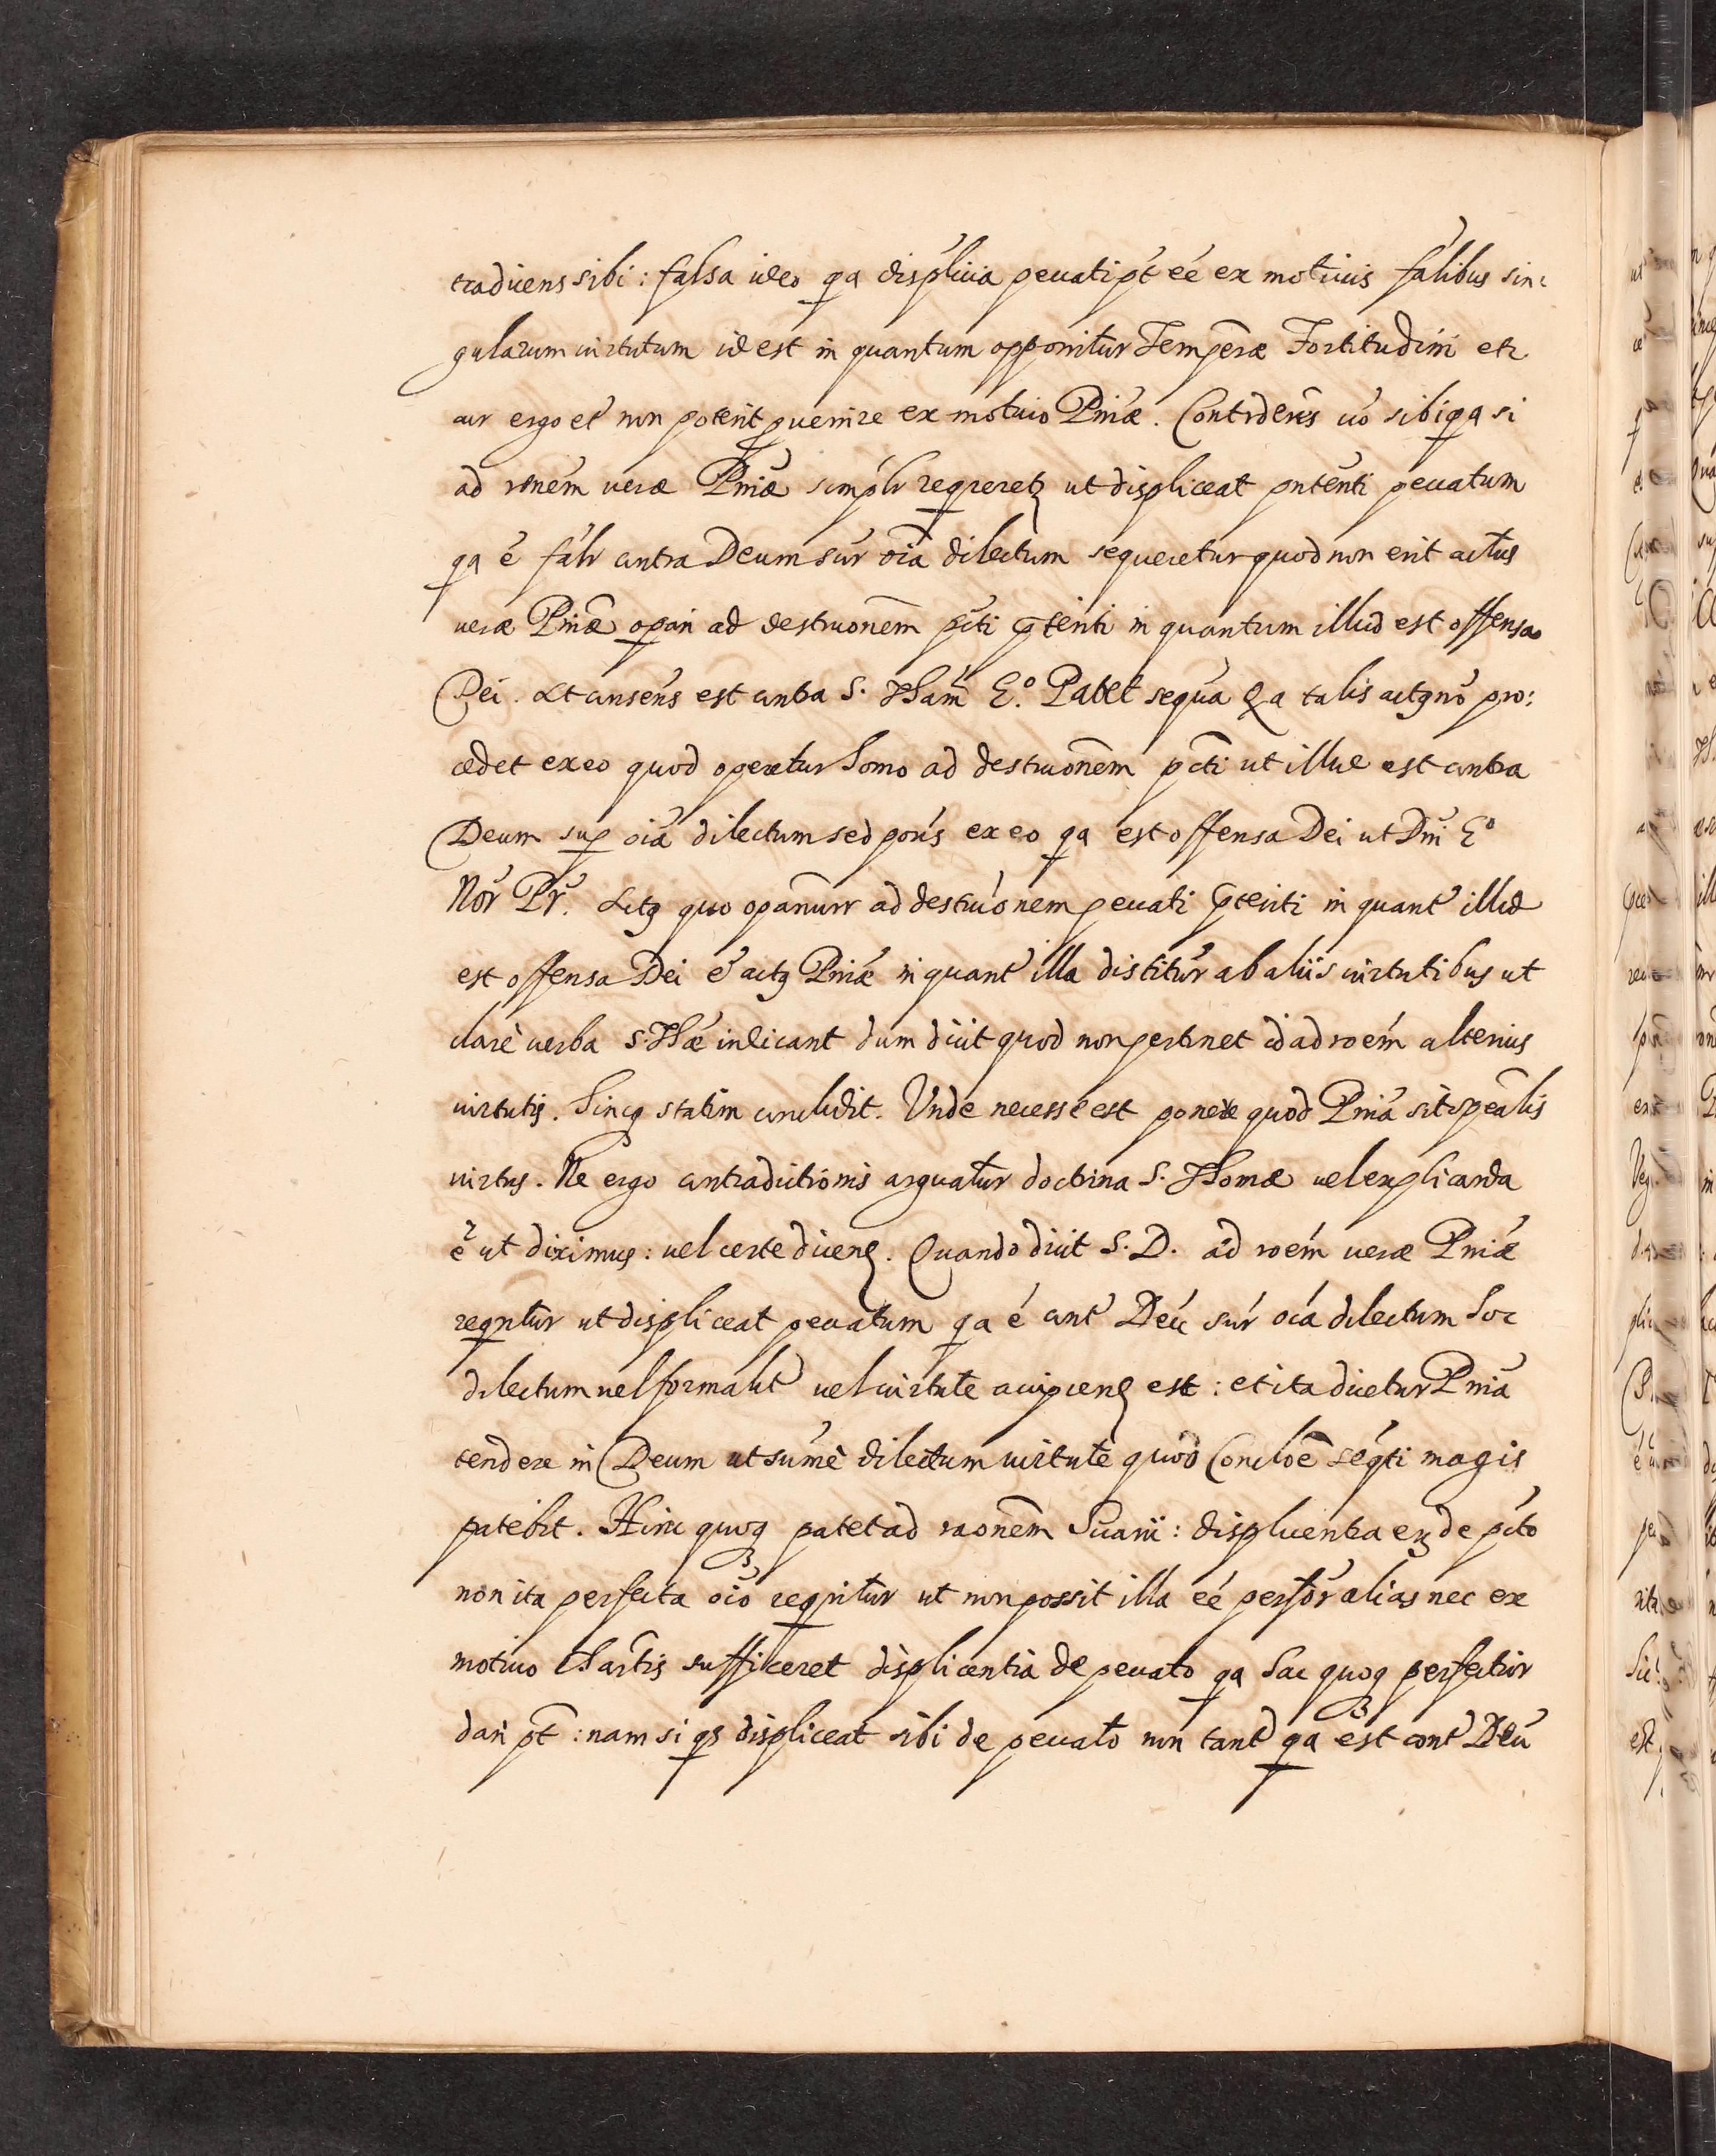 tradicens sibi: falsa ideo qa displicia peccati pt eé ex motiuis fālibus sin:
gularum uirtutum id est in quantum opponitur Temperæ Fortitudini etc
cur ergo et non poterit puenire ex motiuo Pniæ. Contrdcens uo sibi qa si
ad ronem ueræ Pniæ simplr reqreretz ut displiceat pntenti peccatum
qa é falr contra Deum sur oia dilectum sequeretur quod non erit actus
ueræ Pniæ opari ad destruonem pcti pteriti in quantum illud est offensa
Dei. At consens est contra S. Tham E.º Patet sequa Qa talis actq no pro:
cedet ex eo quod operetur homo ad destruonem pcti ut illud est contra
Deum sup oia dilectum sed poris ex eo qa est offensa Dei ut Dni Eº
Nor Pr. Actq quo opamur ad destruonem peccati pteriti in quant illud
est offensa Dei é actq Pniæ in quant illa distitur ab aliis uirtutibus ut
clare uerba S. Thæ indicant dum dicit quod non pertinet id ad roem alterius
uirtutis. hincq statim concludit. Vnde necesse est ponere quod Pnia sit spealis
uirtus. Ne ergo contradictionis arguatur doctrina S. Thomæ uel explicanda
é ut diximus: uel certe dicenq. Quando dicit S. D. ad roem ueræ Pniæ
reqritur ut displiceat peccatum qa é cont Deú sur oia dilectum hoc
dilectum uel formalit uel uirtute accipienq est: et ita dicetur Pnia
tendere in Deum ut sume dilectum uirtute quod Concloe seqti magis
patebit. Hinc quoq patet ad raonem Suarii: displicentia ez de pcto
non ita perfecta oio reqritur ut non possit illa eé perfor alias nec ex
motiuo Chartis sufficeret displicentia de peccato qa hac quoq perfectior
dari pt: nam si qs displiceat sibi de peccato non tant qa est cont Deu